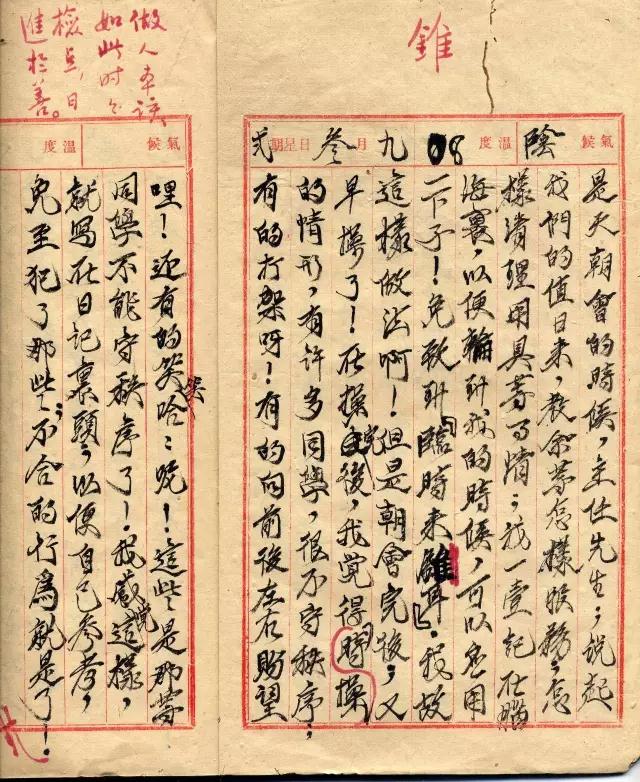 錐
氣候 陰 溫度 80 九月叁日星期弍
是天朝會的時候,主任先生;說起
我們的值日来,教余等怎樣服務,怎
樣清理用具等事情;我一壹記在腦
海裏,以便輪到我的時候,可以应用
一下子!免致到臨時来耳.我故
這樣做法啊!但是朝會完後;又
早操了!在操完後,我覺得時操
的情形,有許多同學,很不守秩序;
有的打架呀!有的向前後左右盼望
做人本該
如此时々
檢点,日
進於善。
氣候 溫度
哩!还有的笑哈:呢!這些是那等
同學不能守秩序了!我感覺這樣,
就写在日記裏頭,以便自己参考,
免至犯了那些:不合的行為就是了!